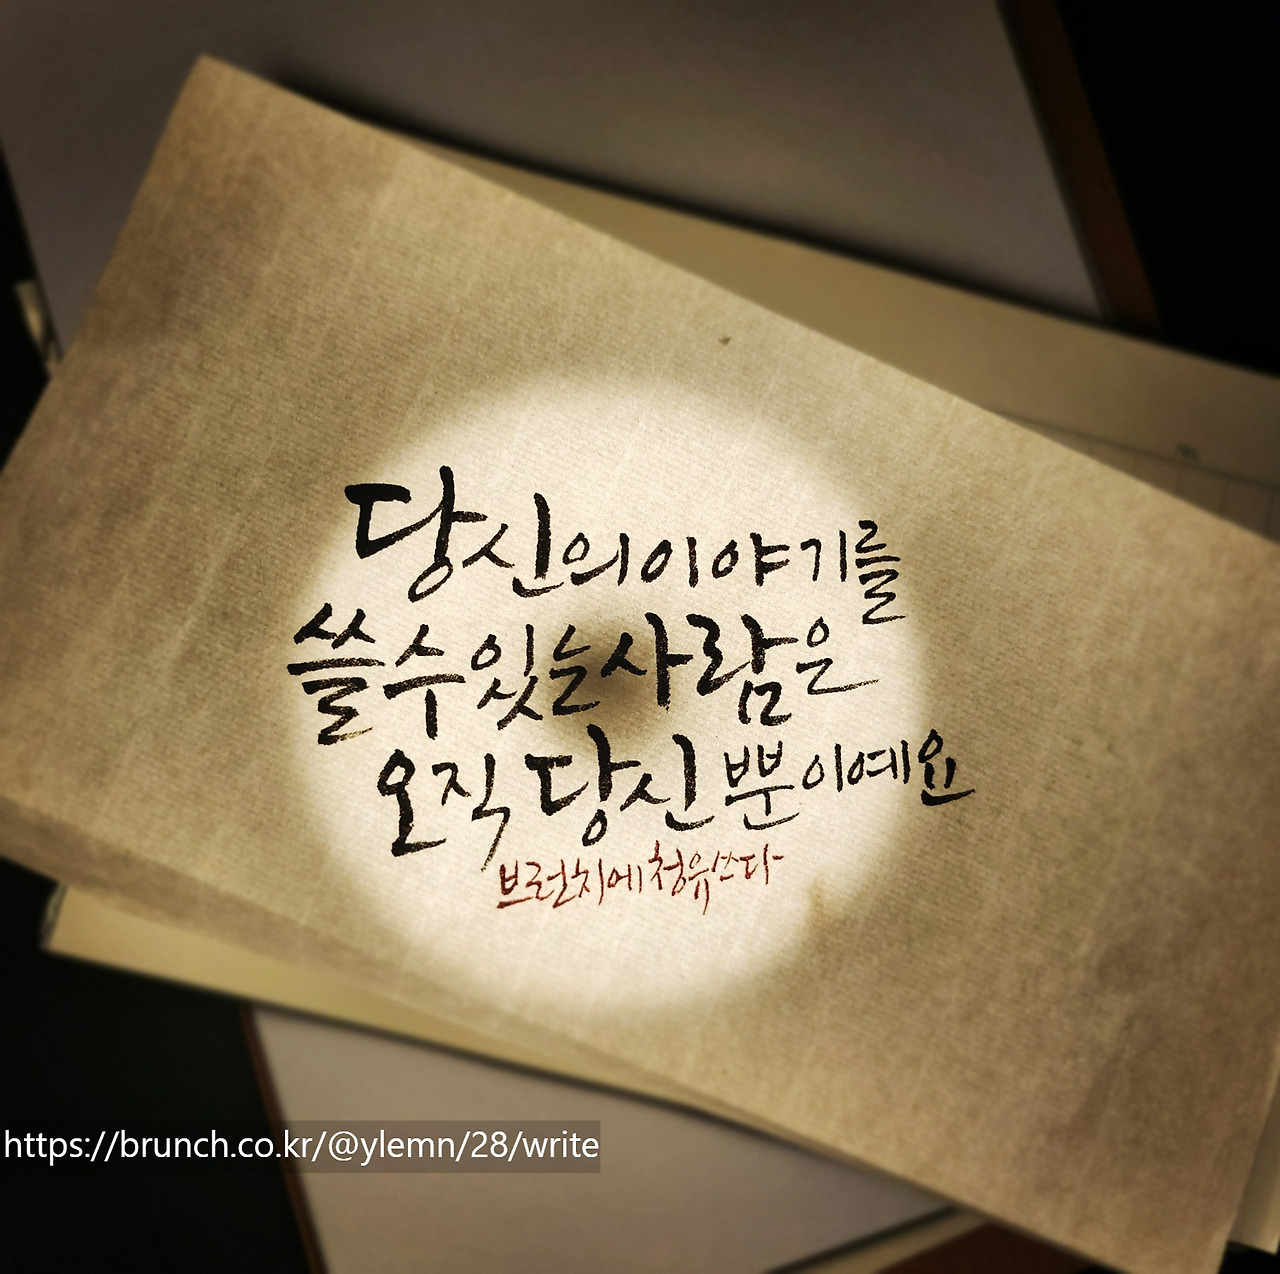 당신의 이야기를
쓸 수 있는 사람은
오직 당신 뿐이예요
브런치에 청유쓰다
https://brunch.co.kr/@ylemn/28/write